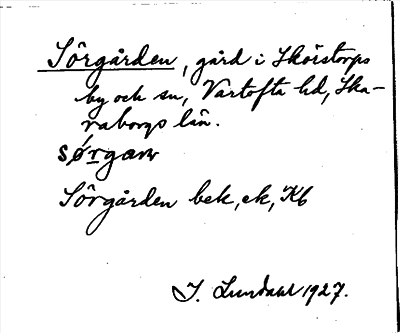 Sörgården, gård i Skörstorps
by och sn, Vartofta hd, Ska-
raborgs län.
sǿrgaɴ
Sörgården bek, ek, Kb
I. Lundahl 1927.